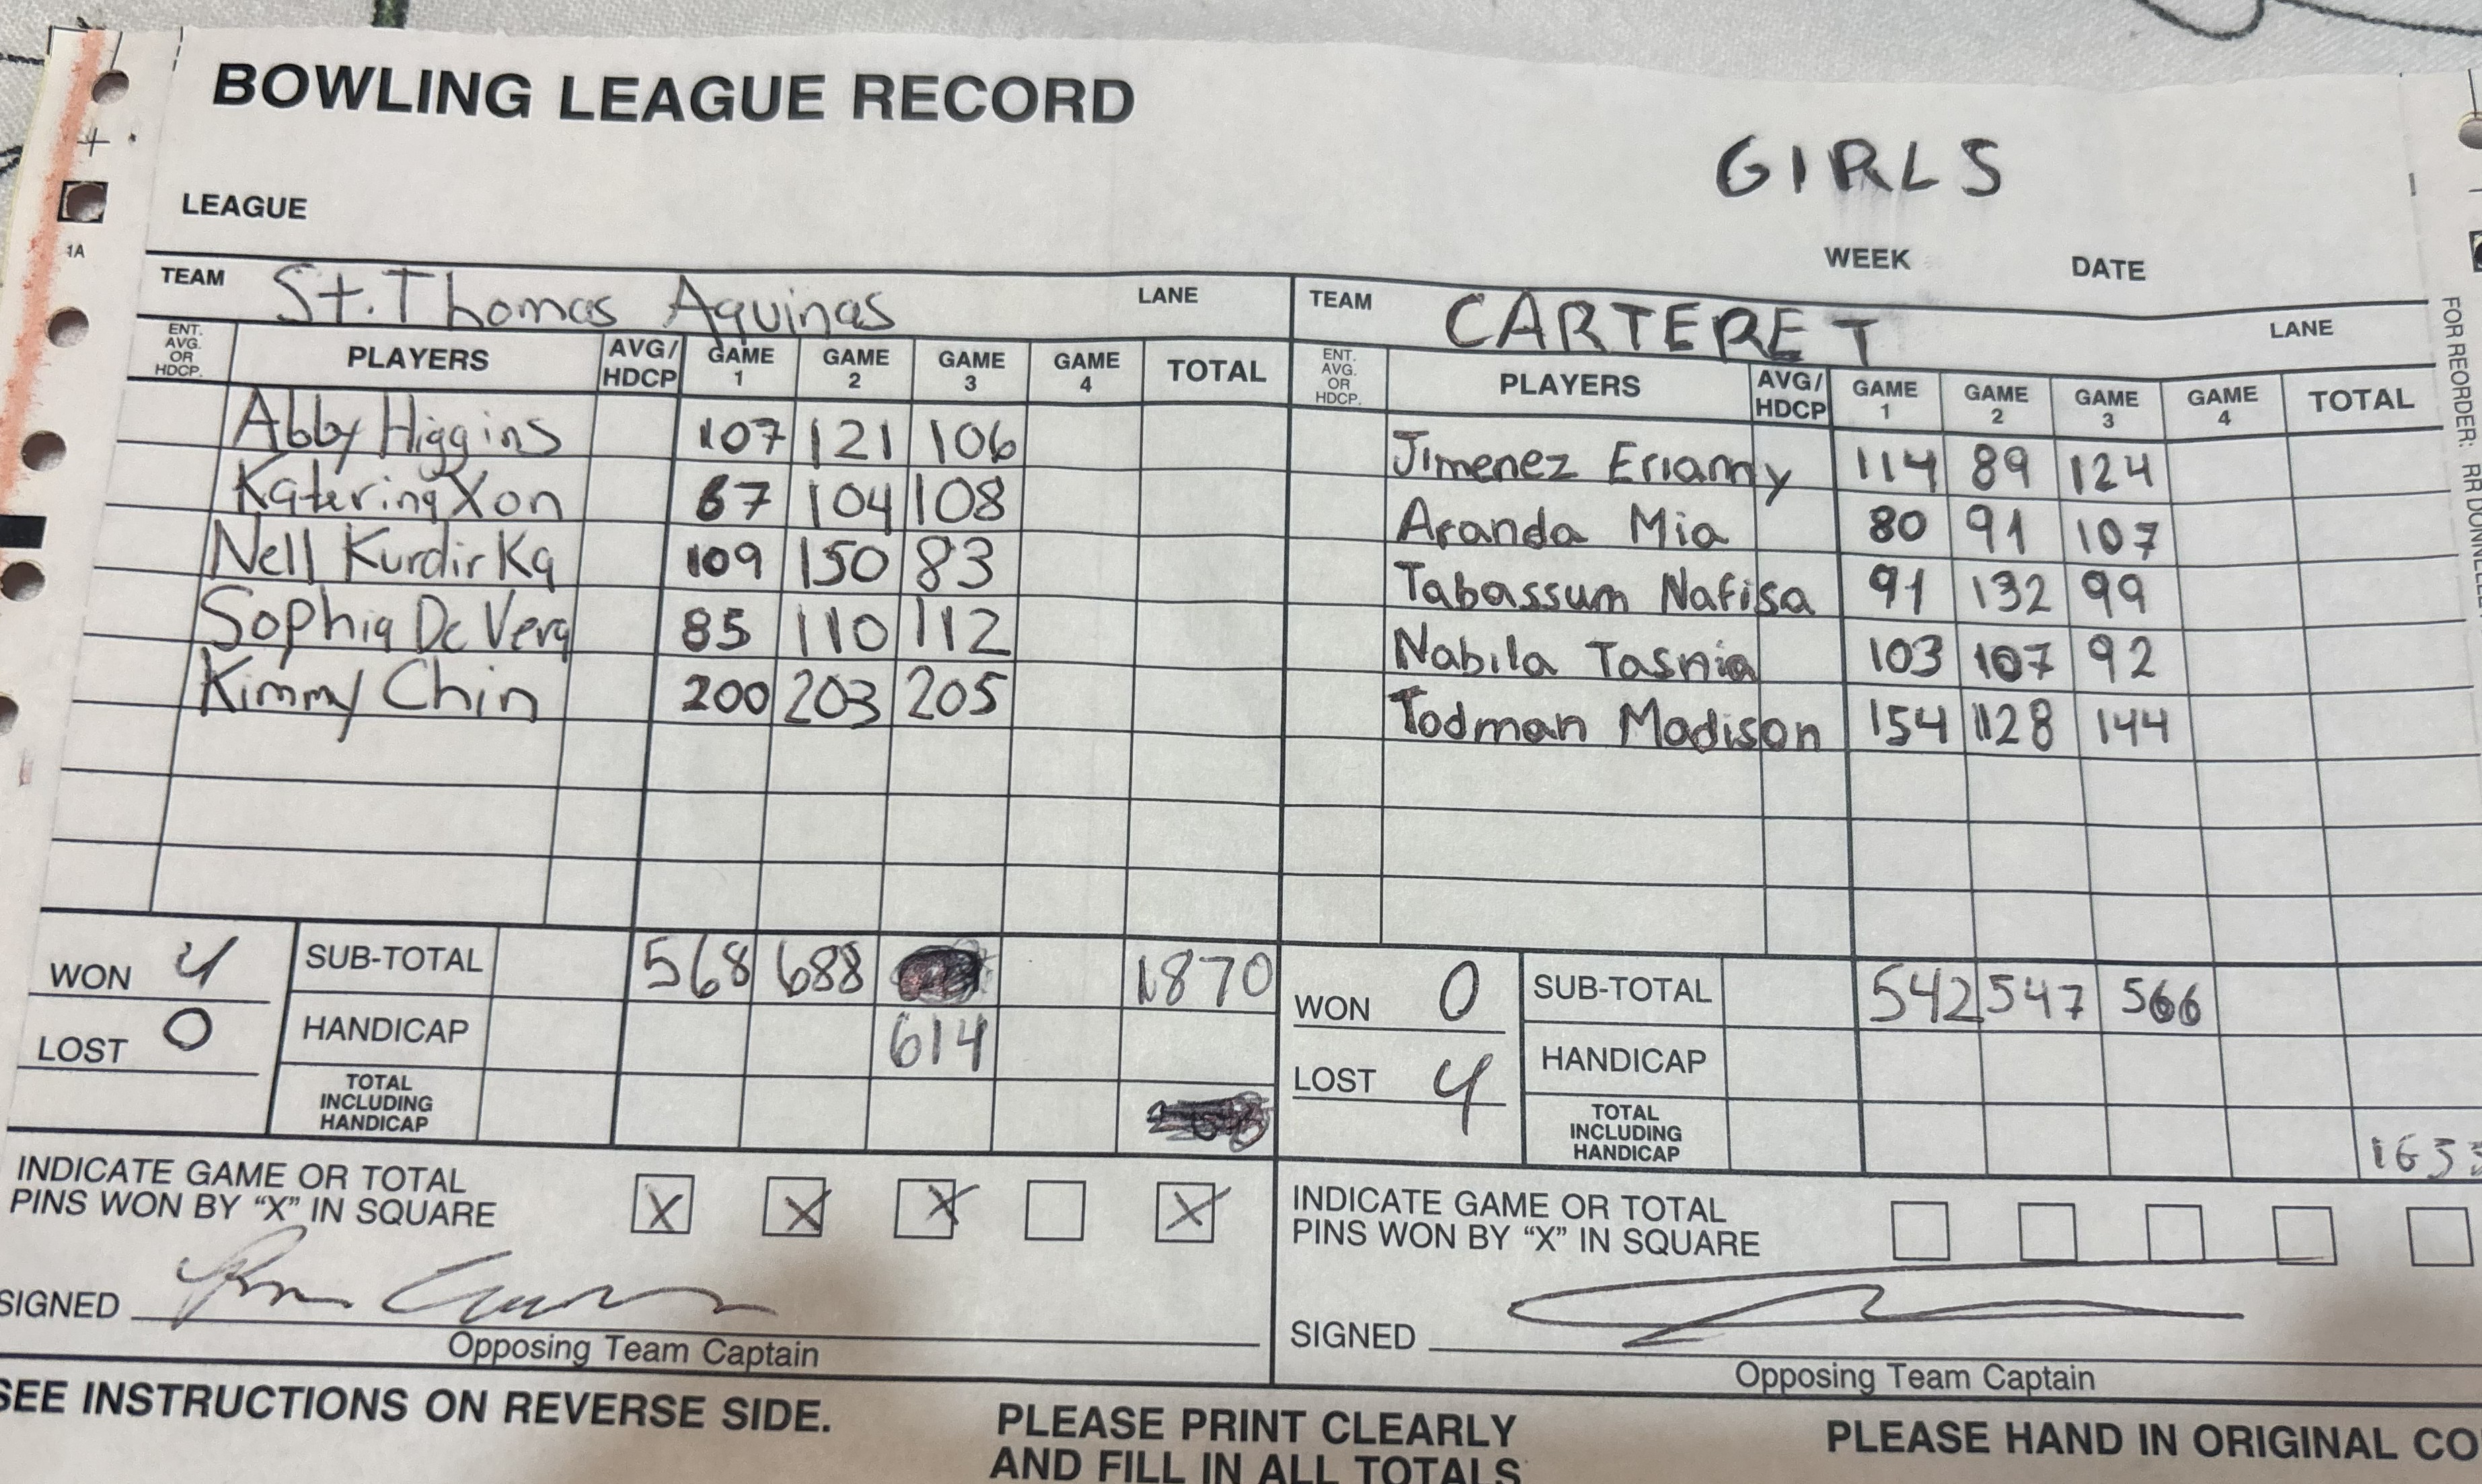 BOWLING LEAGUE RECORD
GIRLS
LEAGUE
1A
WEEK DATE
TEAM St. Thomas Aquinas LANE TEAM CARTERET LANE
ENT. AVG. OR HDCP. PLAYERS AVG/HDCP GAME 1 GAME 2 GAME 3 GAME 4 TOTAL ENT. AVG. OR HDCP. PLAYERS AVG/HDCP GAME 1 GAME 2 GAME 3 GAME 4 TOTAL
Abby Higgins 107 121 106 Jimenez Erianny 114 89 124
Katering Xon 67 104 108 Aranda Mia 80 91 107
Nell Kurdirka 109 150 83 Tabassum Nafisa 91 132 99
Sophia De Vera 85 110 112 Nabila Tasnia 103 107 92
Kimmy Chin 200 203 205 Todman Madison 154 128 144
WON 4 SUB-TOTAL 568 688 1870 WON 0 SUB-TOTAL 542 547 566
LOST 0 HANDICAP 614 LOST 4 HANDICAP
TOTAL INCLUDING HANDICAP TOTAL INCLUDING HANDICAP
INDICATE GAME OR TOTAL INDICATE GAME OR TOTAL
PINS WON BY “X” IN SQUARE X X X X PINS WON BY “X” IN SQUARE
SIGNED SIGNED
Opposing Team Captain Opposing Team Captain
SEE INSTRUCTIONS ON REVERSE SIDE. PLEASE PRINT CLEARLY PLEASE HAND IN ORIGINAL
AND FILL IN ALL TOTALS
FOR REORDER: RR DONNELLEY